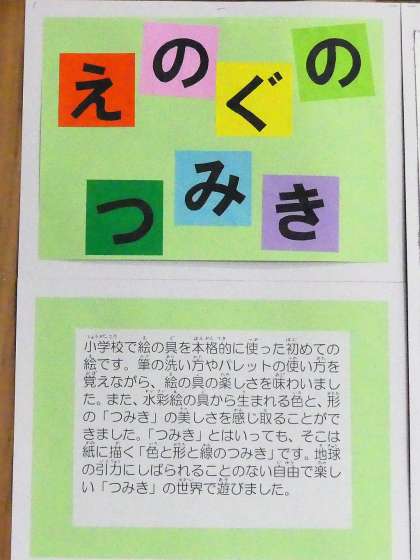 えのぐの
つみき
小学校で絵の具を本格的に使った初めての
絵です。筆の洗い方やパレットの使い方を
覚えながら、絵の具の楽しさを味わいまし
た。また、水彩絵の具から生まれる色と、形
の「つみき」の美しさを感じ取ることがで
きました。「つみき」とはいっても、そこは
紙に描く「色と形と線のつみき」です。地球
の引力にしばられることのない自由で楽し
い「つみき」の世界で遊びました。